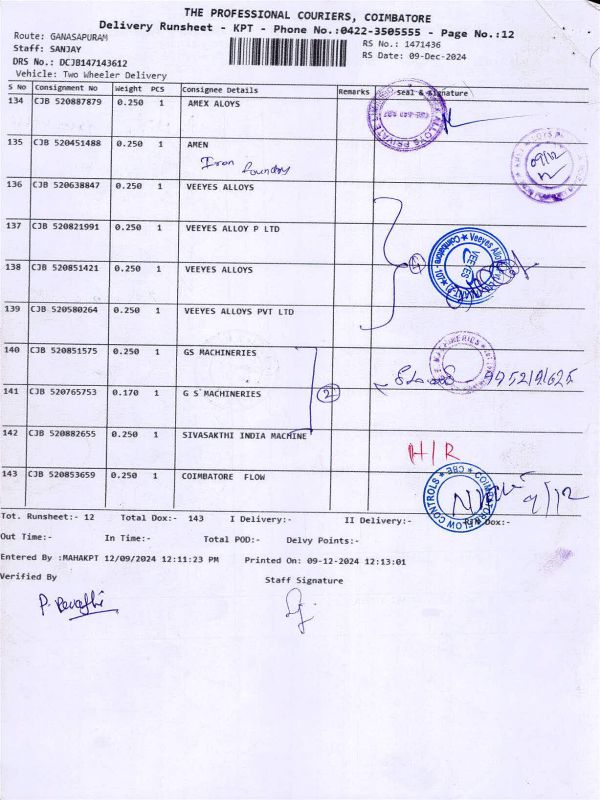 THE PROFESSIONAL COURIERS, COIMBATORE
Delivery Runsheet - KPT - Phone No.:0422-3505555 - Page No.:12
Route: GANASAPURAM
RS No.: 1471436
Staff: SANJAY
RS Date: 09-Dec-2024
DRS No.: DCJB147143612
Vehicle: Two Wheeler Delivery
S No Consignment No Weight PCS Consignee Details Remarks seal & Signature
134 CJB 520887879 0.250 1 AMEX ALOYS
135 CJB 520451488 0.250 1 AMEN
Iron foundry
09/12
136 CJB 520638847 0.250 1 VEEYES ALLOYS
137 CJB 520821991 0.250 1 VEEYES ALLOY P LTD
138 CJB 520851421 0.250 1 VEEYES ALLOYS
139 CJB 520580264 0.250 1 VEEYES ALLOYS PVT LTD
140 CJB 520851575 0.250 1 GS MACHINERIES
141 CJB 520765753 0.170 1 G S MACHINERIES
2
142 CJB 520882655 0.250 1 SIVASAKTHI INDIA MACHINE
H/R
143 CJB 520853659 0.250 1 COIMBATORE FLOW
COIMBATORE FLOW CONTROLS * CBE *
9/12
Tot. Runsheet:- 12 Total Dox:- 143 I Delivery:- II Delivery:- R/N Dox:-
Out Time:- In Time:- Total POD:- Delvy Points:-
Entered By :MAHAKPT 12/09/2024 12:11:23 PM Printed On: 09-12-2024 12:13:01
Verified By Staff Signature
P. Revathi